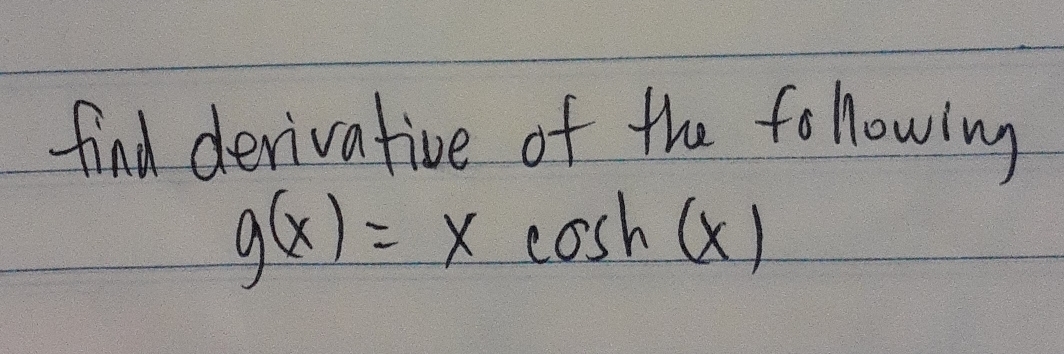 find derivative of the following
g(x) = x cosh (x)